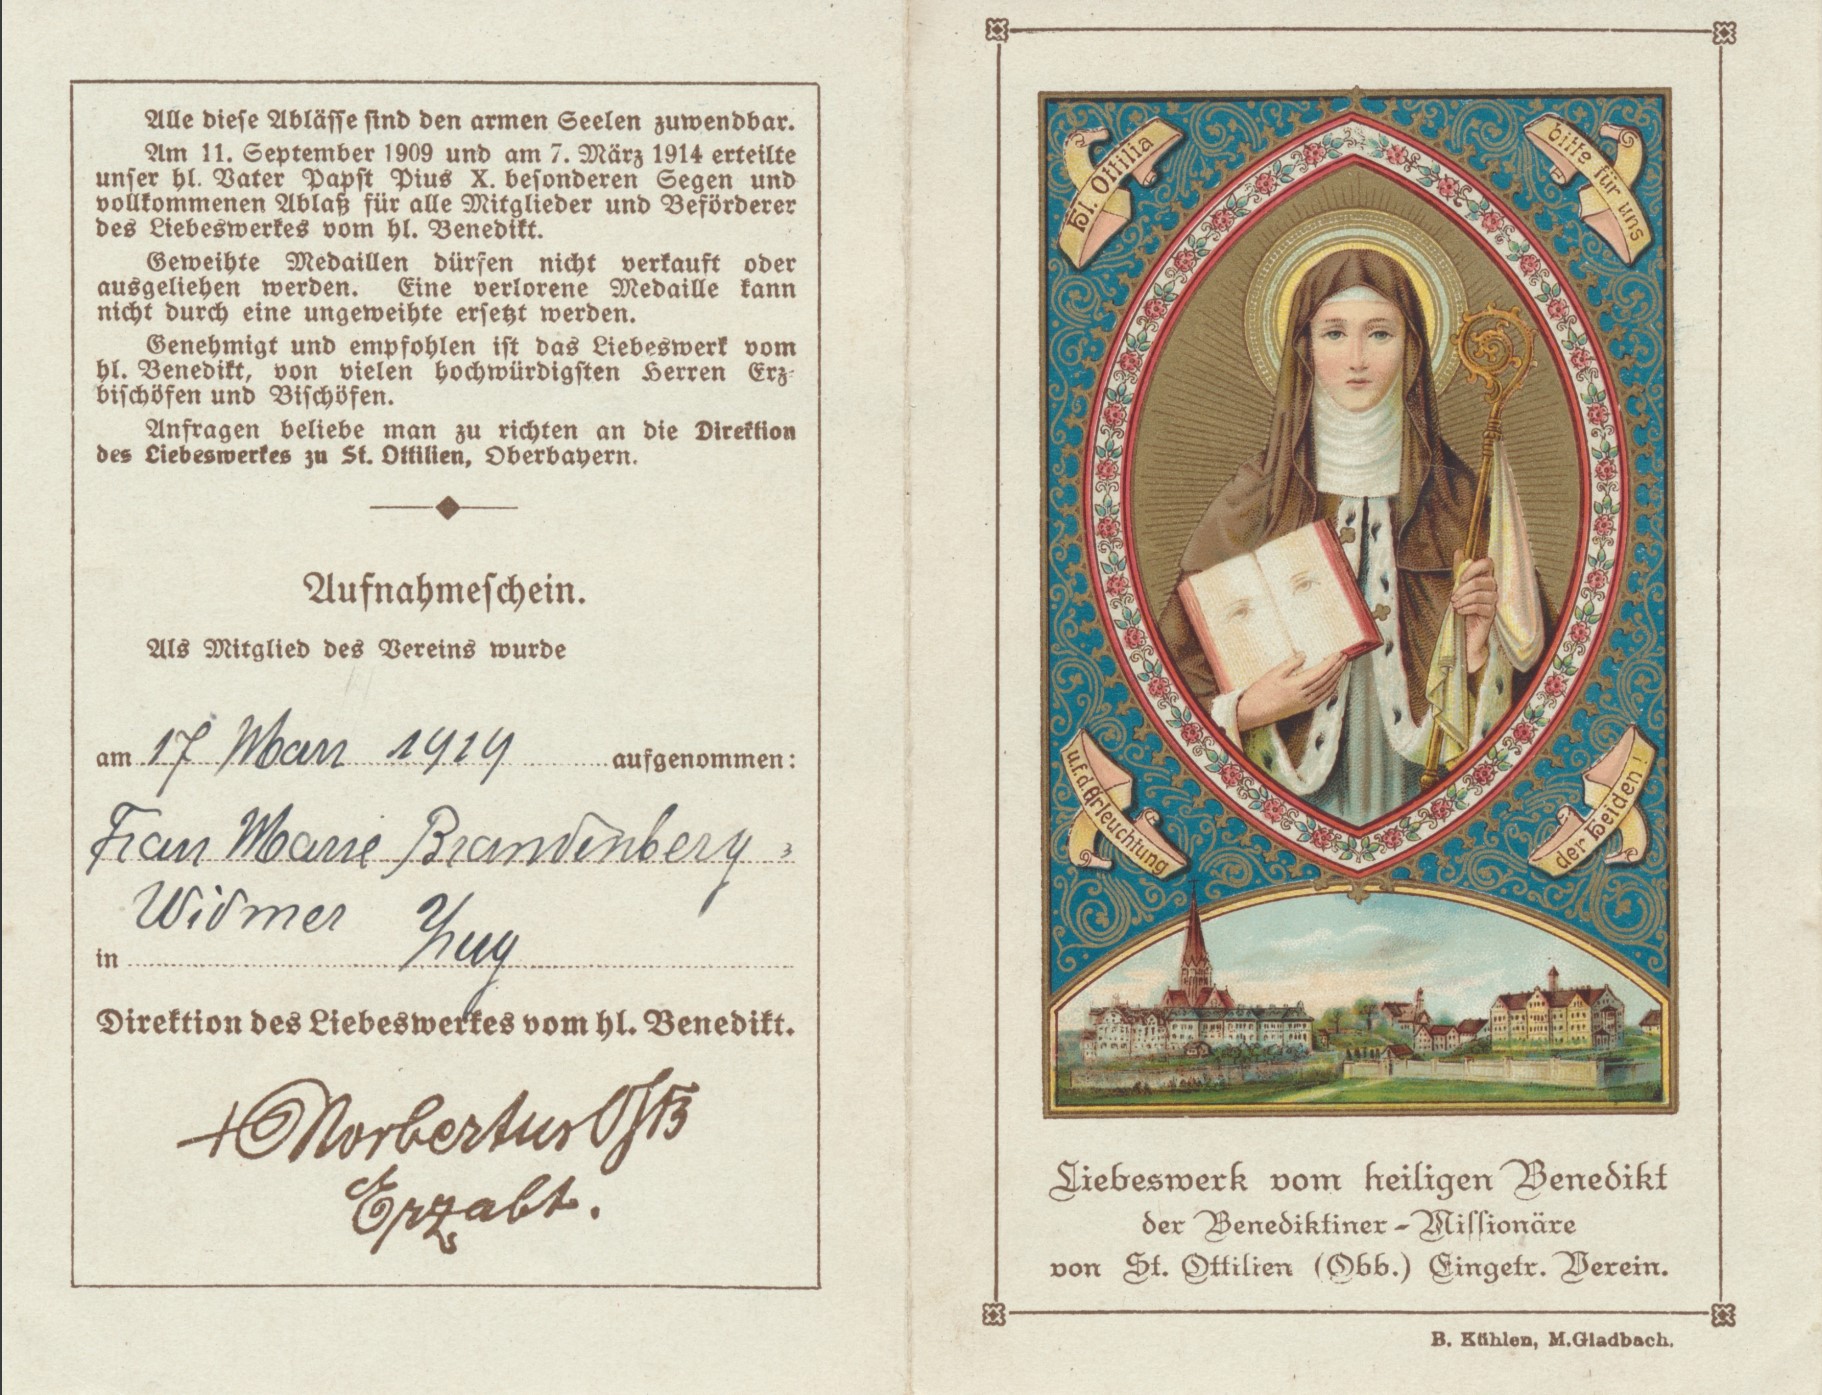 Alle diese Ablässe sind den armen Seelen zuwendbar.
Am 11. September 1909 und am 7. März 1914 erteilte
unser hl. Vater Papst Pius X. besonderen Segen und
vollkommenen Ablaß für alle Mitglieder und Beförderer
des Liebeswerkes vom hl. Benedikt.
Geweihte Medaillen dürfen nicht verkauft oder
ausgeliehen werden. Eine verlorene Medaille kann
nicht durch eine ungeweihte ersetzt werden.
Genehmigt und empfohlen ist das Liebeswerk vom
hl. Benedikt, von vielen hochwürdigsten Herren Erz-
bischöfen und Bischöfen.
Anfragen beliebe man zu richten an die Direktion
des Liebeswerkes zu St. Ottilien, Oberbayern.
Aufnahmeschein.
Als Mitglied des Vereins wurde
am 17 März 1919 aufgenommen:
Frau Marie Brandenberg-
Widmer Zug
in
Direktion des Liebeswerkes vom hl. Benedikt.
+ Norbertus OSB
Erzabt.
Hl. Ottilia
bitte für uns
u.f.d. Erleuchtung
der Heiden!
Liebeswerk vom heiligen Benedikt
der Benediktiner-Missionäre
von St. Ottilien (Obb.) Eingetr. Verein.
B. Kühlen, M.Gladbach.